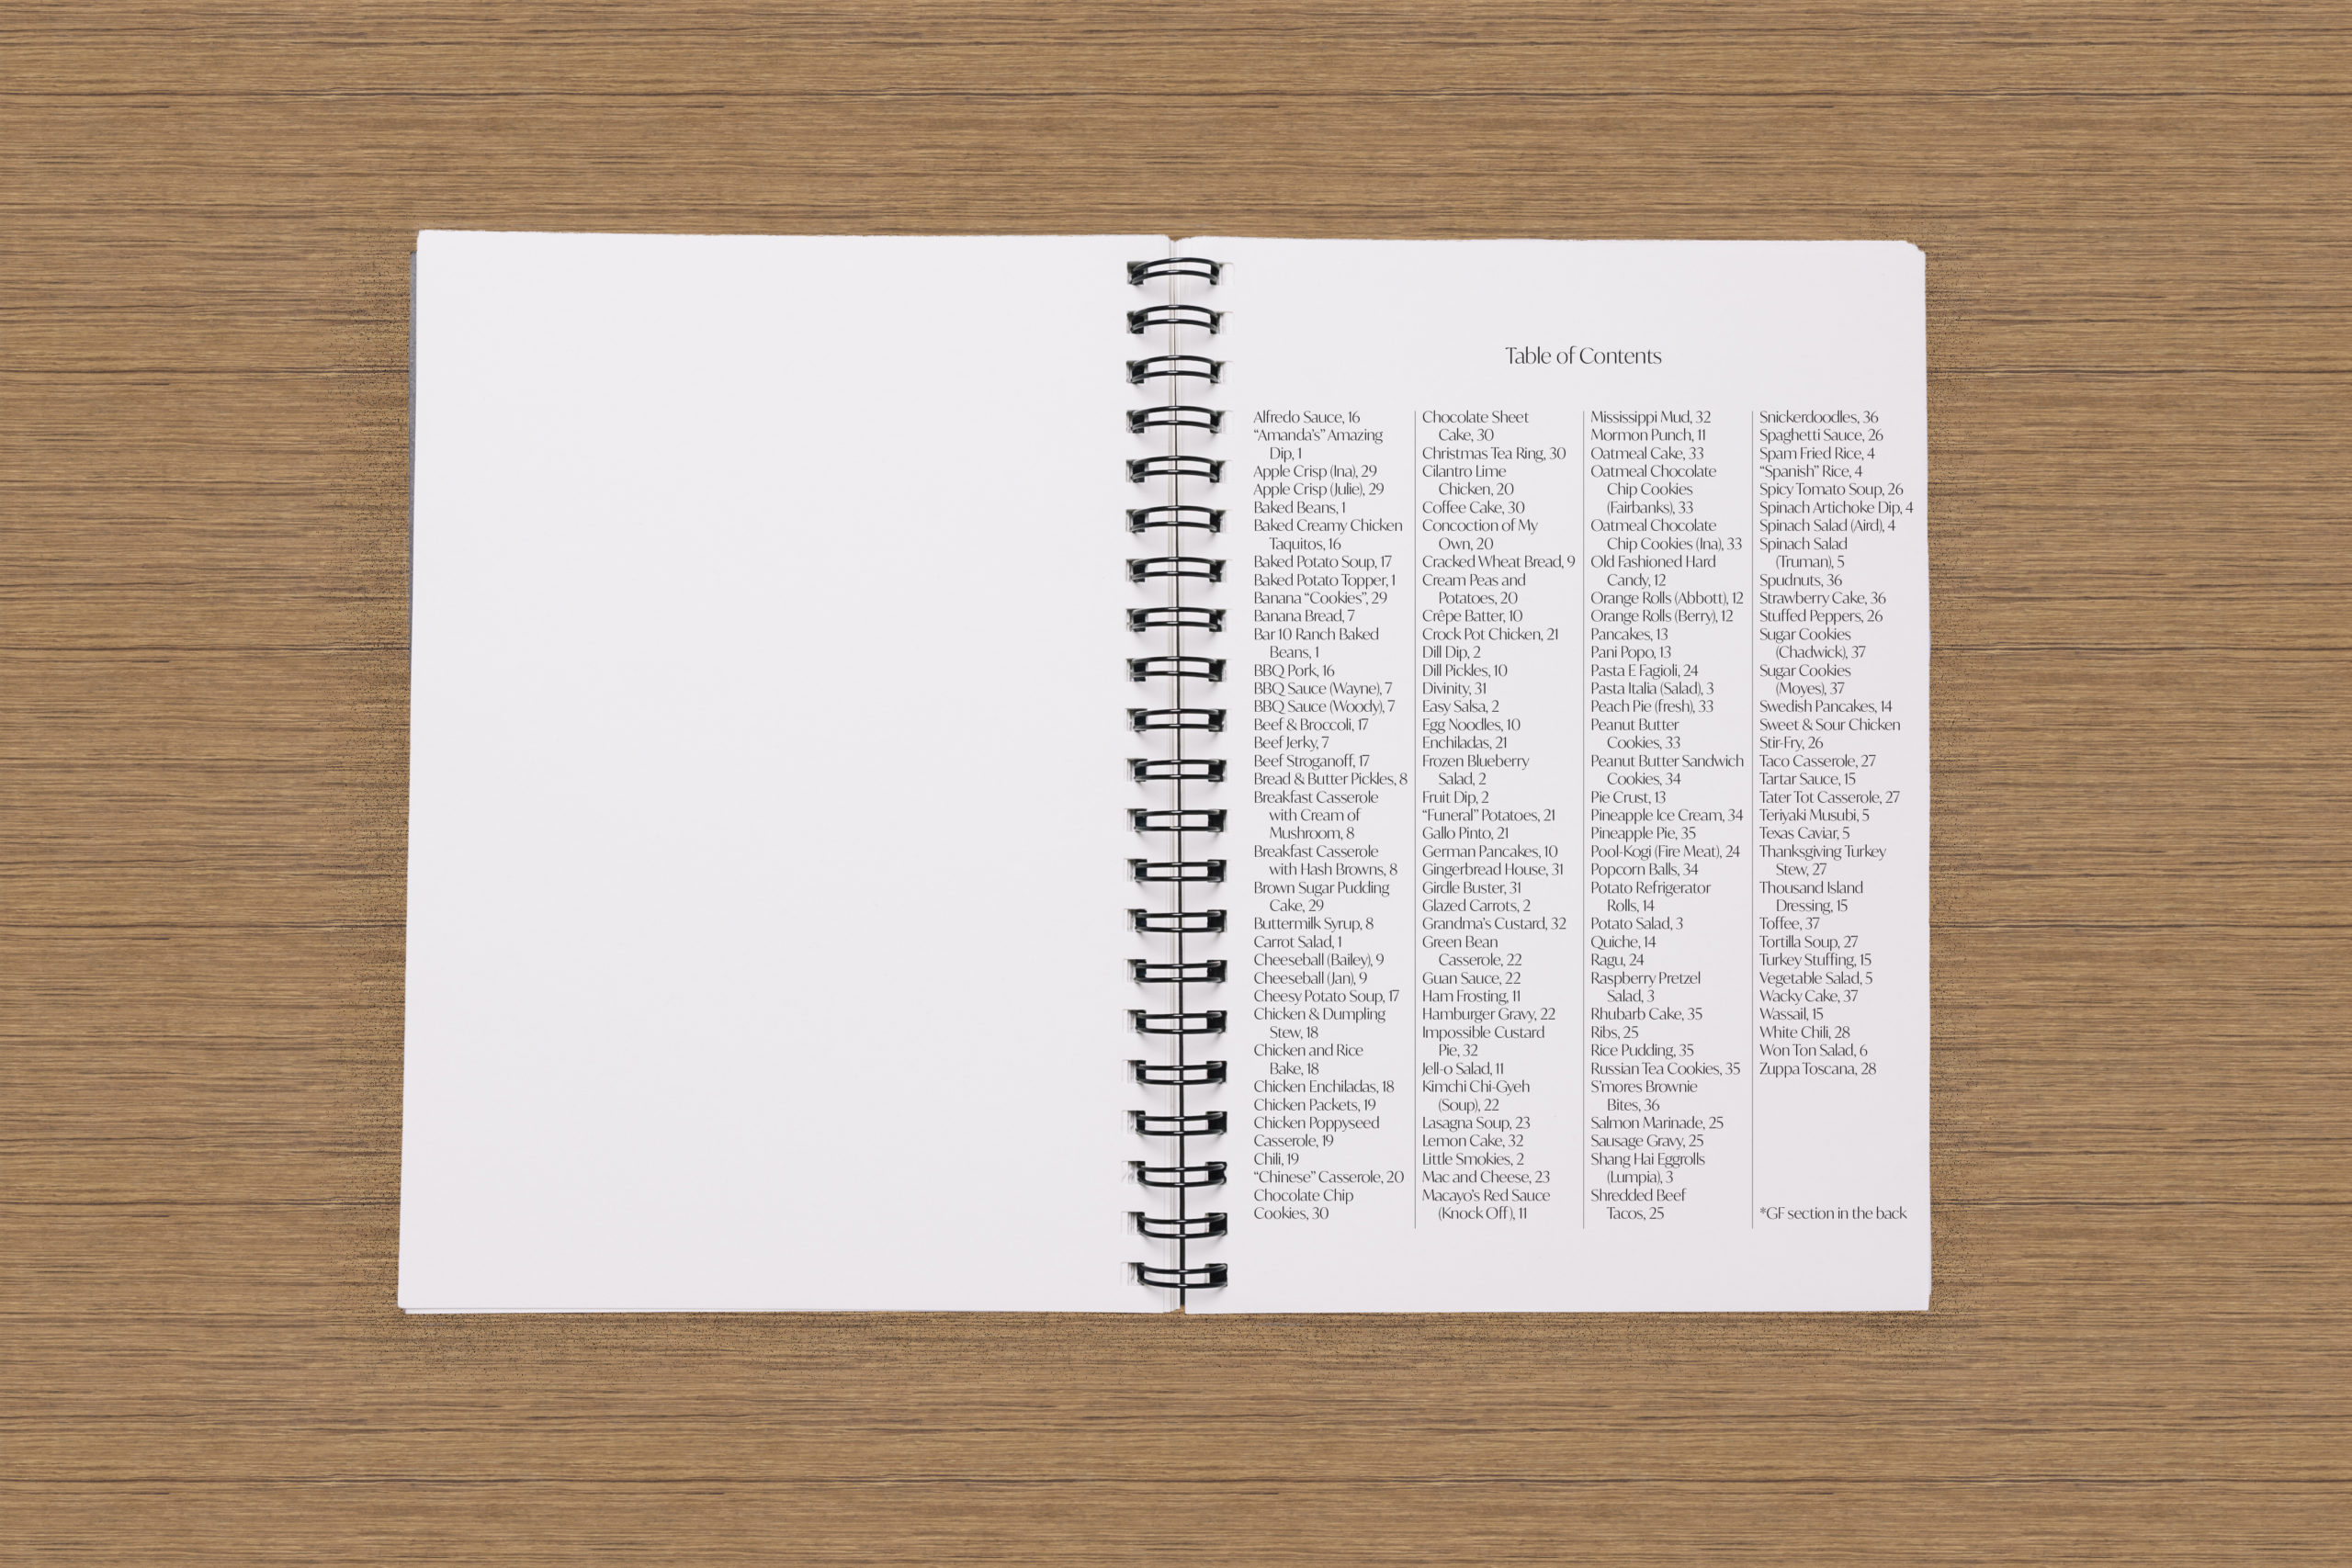 Table of Contents
Alfredo Sauce, 16
“Amanda’s” Amazing
Dip, 1
Apple Crisp (Ina), 29
Apple Crisp (Julie), 29
Baked Beans, 1
Baked Creamy Chicken
Taquitos, 16
Baked Potato Soup, 17
Baked Potato Topper, 1
Banana “Cookies”, 29
Banana Bread, 7
Bar 10 Ranch Baked
Beans, 1
BBQ Pork, 16
BBQ Sauce (Wayne), 7
BBQ Sauce (Woody), 7
Beef & Broccoli, 17
Beef Jerky, 7
Beef Stroganoff, 17
Bread & Butter Pickles, 8
Breakfast Casserole
with Cream of
Mushroom, 8
Breakfast Casserole
with Hash Browns, 8
Brown Sugar Pudding
Cake, 29
Buttermilk Syrup, 8
Carrot Salad, 1
Cheeseball (Bailey), 9
Cheeseball (Jan), 9
Cheesy Potato Soup, 17
Chicken & Dumpling
Stew, 18
Chicken and Rice
Bake, 18
Chicken Enchiladas, 18
Chicken Packets, 19
Chicken Poppyseed
Casserole, 19
Chili, 19
“Chinese” Casserole, 20
Chocolate Chip
Cookies, 30
Chocolate Sheet
Cake, 30
Christmas Tea Ring, 30
Cilantro Lime
Chicken, 20
Coffee Cake, 30
Concoction of My
Own, 20
Cracked Wheat Bread, 9
Cream Peas and
Potatoes, 20
Crêpe Batter, 10
Crock Pot Chicken, 21
Dill Dip, 2
Dill Pickles, 10
Divinity, 31
Easy Salsa, 2
Egg Noodles, 10
Enchiladas, 21
Frozen Blueberry
Salad, 2
Fruit Dip, 2
“Funeral” Potatoes, 21
Gallo Pinto, 21
German Pancakes, 10
Gingerbread House, 31
Girdle Buster, 31
Glazed Carrots, 2
Grandma’s Custard, 32
Green Bean
Casserole, 22
Guan Sauce, 22
Ham Frosting, 11
Hamburger Gravy, 22
Impossible Custard
Pie, 32
Jell-o Salad, 11
Kimchi Chi-Gyeh
(Soup), 22
Lasagna Soup, 23
Lemon Cake, 32
Little Smokies, 2
Mac and Cheese, 23
Macayo’s Red Sauce
(Knock Off), 11
Mississippi Mud, 32
Mormon Punch, 11
Oatmeal Cake, 33
Oatmeal Chocolate
Chip Cookies
(Fairbanks), 33
Oatmeal Chocolate
Chip Cookies (Ina), 33
Old Fashioned Hard
Candy, 12
Orange Rolls (Abbott), 12
Orange Rolls (Berry), 12
Pancakes, 13
Pani Popo, 13
Pasta E Fagioli, 24
Pasta Italia (Salad), 3
Peach Pie (fresh), 33
Peanut Butter
Cookies, 33
Peanut Butter Sandwich
Cookies, 34
Pie Crust, 13
Pineapple Ice Cream, 34
Pineapple Pie, 35
Pool-Kogi (Fire Meat), 24
Popcorn Balls, 34
Potato Refrigerator
Rolls, 14
Potato Salad, 3
Quiche, 14
Ragu, 24
Raspberry Pretzel
Salad, 3
Rhubarb Cake, 35
Ribs, 25
Rice Pudding, 35
Russian Tea Cookies, 35
S’mores Brownie
Bites, 36
Salmon Marinade, 25
Sausage Gravy, 25
Shang Hai Eggrolls
(Lumpia), 3
Shredded Beef
Tacos, 25
Snickerdoodles, 36
Spaghetti Sauce, 26
Spam Fried Rice, 4
“Spanish” Rice, 4
Spicy Tomato Soup, 26
Spinach Artichoke Dip, 4
Spinach Salad (Aird), 4
Spinach Salad
(Truman), 5
Spudnuts, 36
Strawberry Cake, 36
Stuffed Peppers, 26
Sugar Cookies
(Chadwick), 37
Sugar Cookies
(Moyes), 37
Swedish Pancakes, 14
Sweet & Sour Chicken
Stir-Fry, 26
Taco Casserole, 27
Tartar Sauce, 15
Tater Tot Casserole, 27
Teriyaki Musubi, 5
Texas Caviar, 5
Thanksgiving Turkey
Stew, 27
Thousand Island
Dressing, 15
Toffee, 37
Tortilla Soup, 27
Turkey Stuffing, 15
Vegetable Salad, 5
Wacky Cake, 37
Wassail, 15
White Chili, 28
Won Ton Salad, 6
Zuppa Toscana, 28
*GF section in the back